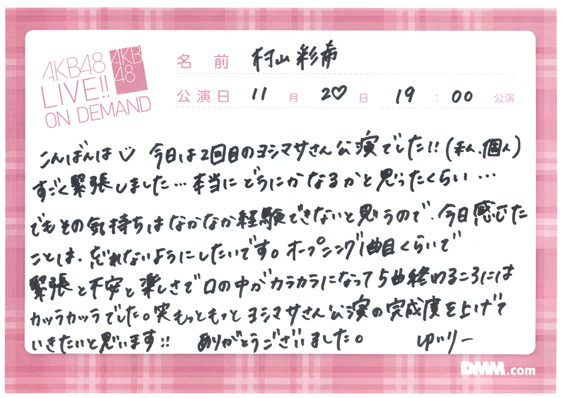 AKB48
LIVE!!
ON DEMAND
AKB
48
名前 村山彩希
公演日 11月20日 19:00公演
こんばんは 今日は2回目のヨシマサさん公演でした!!(私、個人)
すごく緊張しました…本当にどうにかなるかと思ったくらい…
でもその気持ちはなかなか経験できないと思うので、今日感じた
ことは、忘れないようにしたいです。オープニング1曲目くらいで
緊張と不安と楽しさで口の中がカラカラになって5曲終わるころには
カッラカッラでした。笑 もっともっとヨシマサさん公演の完成度を上げて
いきたいと思います!! ありがとうございました。 ゆいりー
DMM.com